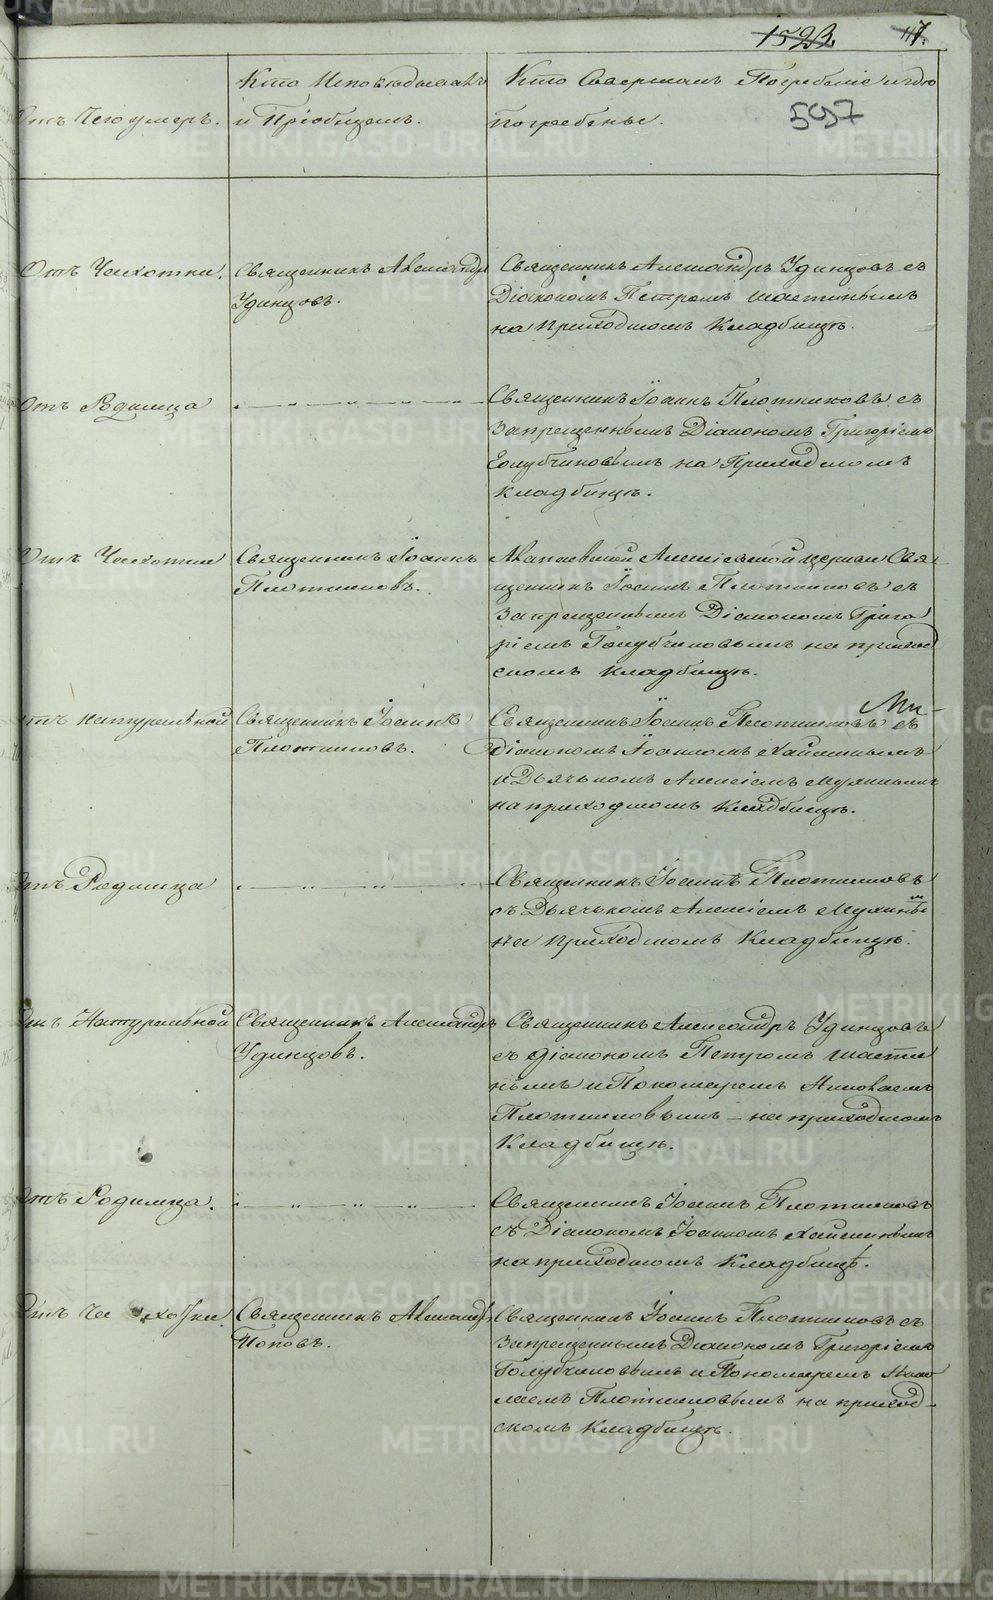 1523. 117.
597
Отъ Чего умеръ.
Кто Исповѣдывалъ
и Пріобщалъ.
Кто Совершалъ Погребеніе и гдѣ
Погребены.
Отъ Чахотки.
Священникъ Александръ
Удинцовъ.
Священникъ Александръ Удинцовъ съ
Діакономъ Петромъ
на приходскомъ Кладбищѣ.
Отъ Родимца
Священникъ Іоаннъ Плотниковъ съ
Запрещеннымъ Діакономъ Григоріемъ
Голубчиковымъ на Приходскомъ
Кладбищѣ.
Отъ Чахотки
Священникъ Іоаннъ
Плотниковъ.
Алексіевской церкви Свя-
щенникъ Іоаннъ Плотниковъ съ
Запрещеннымъ Діакономъ Григо
ріемъ Голубчиковымъ на приход
скомъ Кладбищѣ.
Отъ натуральной
Священникъ Іоаннъ
Плотниковъ.
Священникъ Іоаннъ Плотниковъ съ
Діакономъ Іоанномъ
и Дьячкомъ Алексіемъ Мухинымъ
на приходскомъ Кладбищѣ.
Отъ Родимца
Священникъ Іоаннъ Плотниковъ
съ Дьячкомъ Алексіемъ Мухинымъ
на приходскомъ Кладбищѣ.
Отъ Натуральной
Священникъ Александръ
Удинцовъ.
Священникъ Александръ Удинцовъ
съ Діакономъ Петромъ
и Пономаремъ Николаемъ
Плотниковымъ – на приходскомъ
Кладбищѣ.
Отъ Родимца.
Священникъ Іоаннъ Плотниковъ
съ Діакономъ Іоанномъ
на приходскомъ Кладбищѣ.
Отъ Ча хотки.
Священникъ Александръ
Поповъ.
Священникъ Іоаннъ Плотниковъ съ
Запрещеннымъ Діакономъ Григоріемъ
Голубчиковымъ и Пономаремъ Нико
лаемъ Плотниковымъ на приход-
скомъ Кладбищѣ.
METRIKI.GASO-URAL.RU